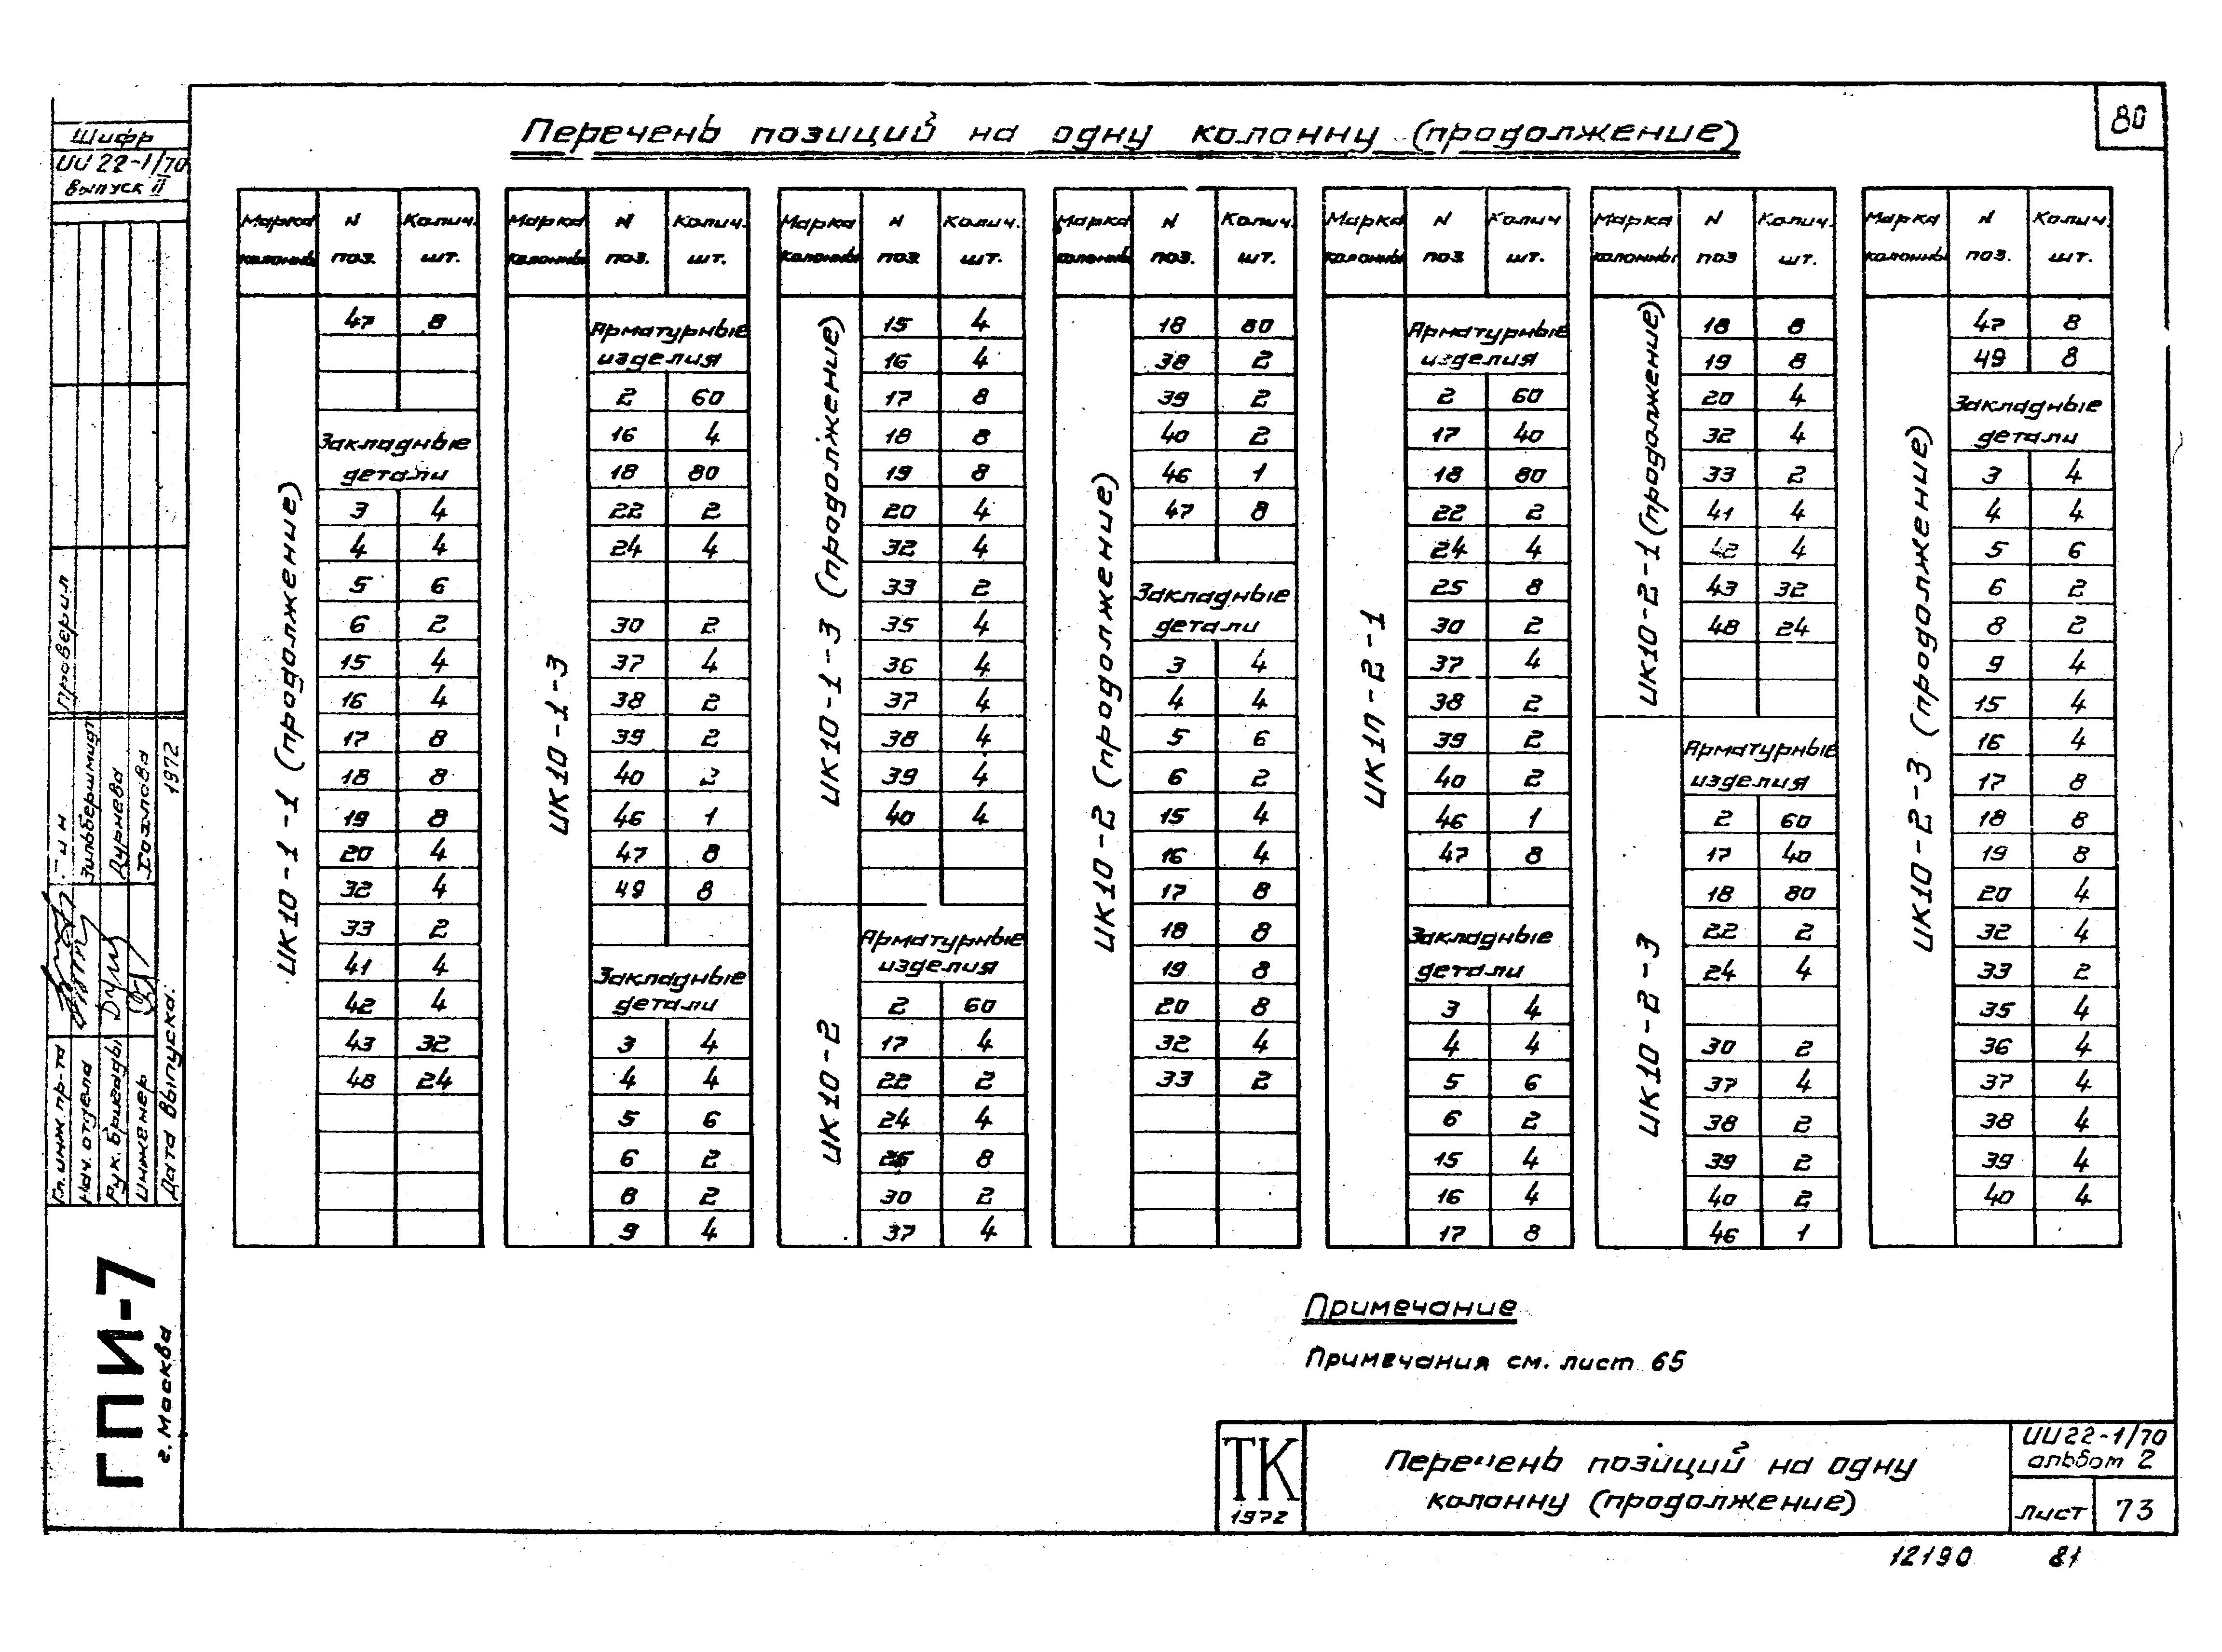 80
Перечень позиций на одну колонну (продолжение)
Шифр
ИИ 22-1/70
выпуск II
Марка колонны | N поз. | Колич. шт.
ИК10-1-1 (продолжение)
47 8
Закладные
детали
3 4
4 4
5 6
6 2
15 4
16 4
17 8
18 8
19 8
20 4
32 4
33 2
41 4
42 4
43 32
48 24
Марка колонны | N поз. | Колич. шт.
ИК10-1-3
Арматурные
изделия
2 60
16 4
18 80
22 2
24 4
30 2
37 4
38 2
39 2
40 2
46 1
47 8
49 8
Закладные
детали
3 4
4 4
5 6
6 2
8 2
9 4
Марка колонны | N поз. | Колич. шт.
ИК10-1-3 (продолжение)
15 4
16 4
17 8
18 8
19 8
20 4
32 4
33 2
35 4
36 4
37 4
38 4
39 4
40 4
ИК10-2
Арматурные
изделия
2 60
17 4
22 2
24 4
8
30 2
37 4
Марка колонны | N поз. | Колич. шт.
ИК10-2 (продолжение)
18 80
38 2
39 2
40 2
46 1
47 8
Закладные
детали
3 4
4 4
5 6
6 2
15 4
16 4
17 8
18 8
19 8
20 8
32 4
33 2
Марка колонны | N поз | Колич шт.
ИК1П-2-1
Арматурные
изделия
2 60
17 40
18 80
22 2
24 4
25 8
30 2
37 4
38 2
39 2
40 2
46 1
47 8
Закладные
детали
3 4
4 4
5 6
6 2
15 4
16 4
17 8
Марка колонны | N поз | Колич. шт.
ИК10-2-1 (продолжение)
18 8
19 8
20 4
32 4
33 2
41 4
42 4
43 32
48 24
ИК10-2-3
Арматурные
изделия
2 60
17 40
18 80
22 2
24 4
30 2
37 4
38 2
39 2
40 2
46 1
Марка колонны | N поз. | Колич. шт.
ИК10-2-3 (продолжение)
47 8
49 8
Закладные
детали
3 4
4 4
5 6
6 2
8 2
9 4
15 4
16 4
17 8
18 8
19 8
20 4
32 4
33 2
35 4
36 4
37 4
38 4
39 4
40 4
Проверил
Зильбершмидт
Дурнева
1972
Гл. инж. пр-та
Нач. отдела
Рук. бригады
Инженер
Дата выпуска:
ГПИ-7
г. Москва
Примечание
Примечания см. лист 65
ТК
1972
Перечень позиций на одну
колонну (продолжение)
ИИ22-1/70
альбом 2
лист 73
12190 81